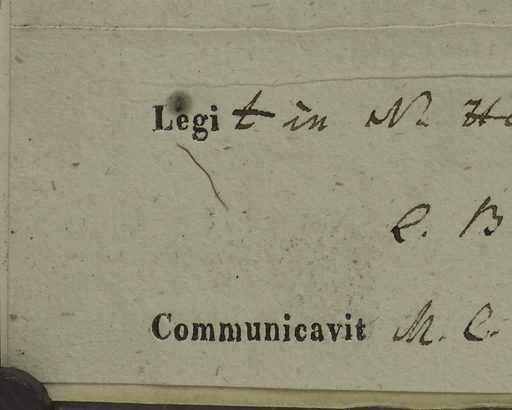 Legit in N. Ho
C. B
Communicavit M. C.